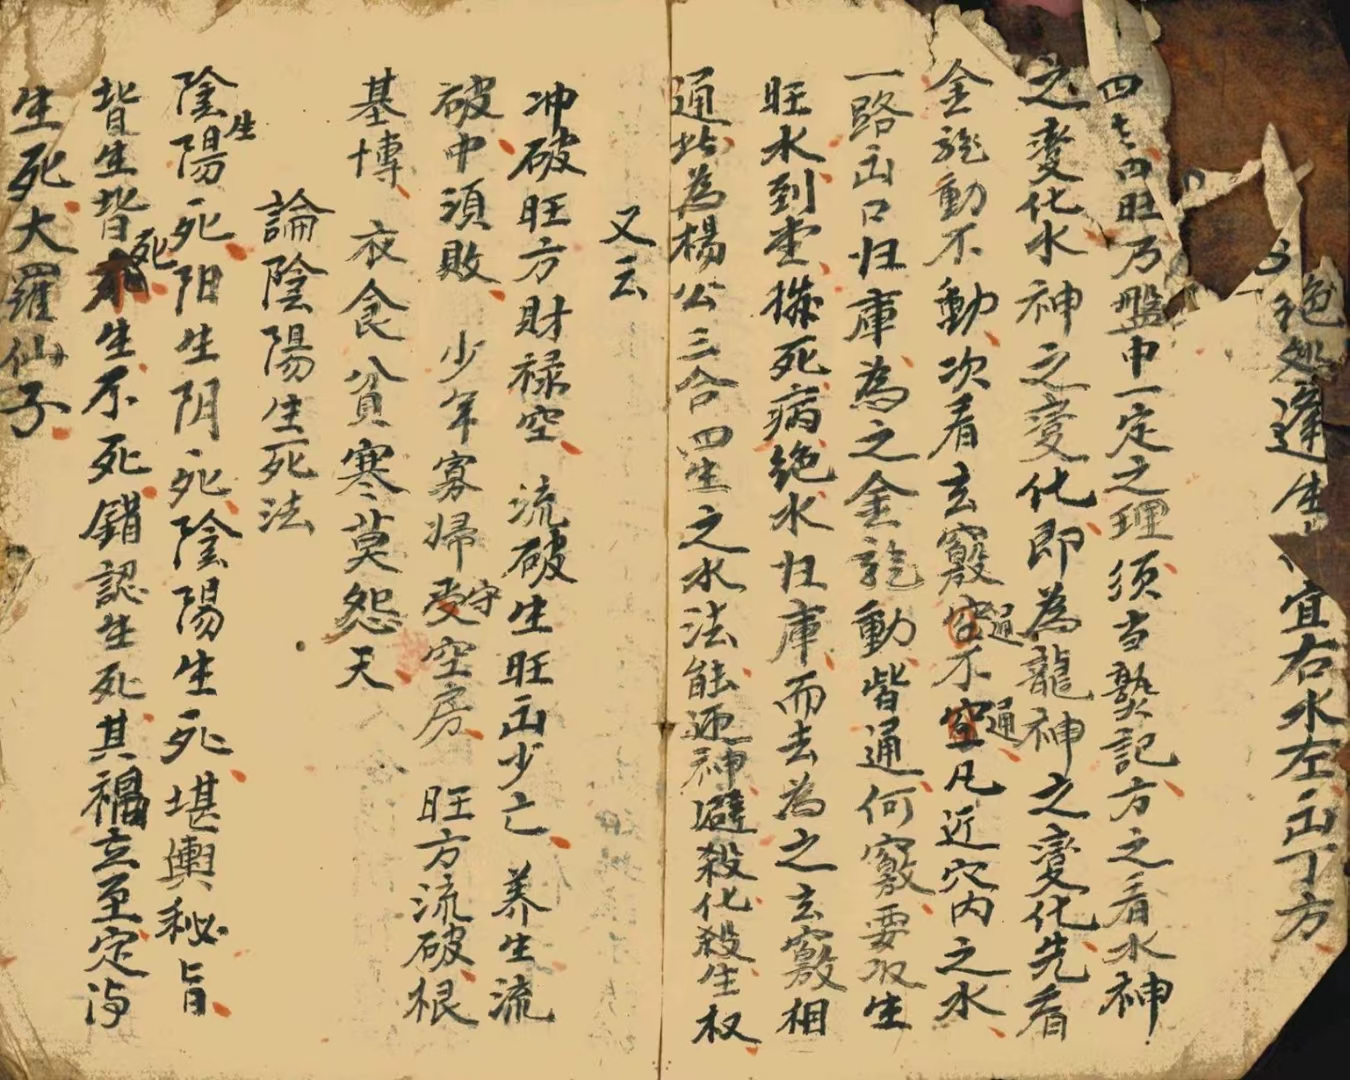 絕处逢生 宜右水左出丁方
四七四旺乃盤中一定之理须当熟記方之看水神
之变化水神之变化即為龍神之变化先看
金龍動不動次看玄竅通不通凡近穴内之水
一路出口归庫為之金龍動皆通何竅要取生
旺水到堂㧞死病绝水归庫而去為之玄竅相
通此為楊公三合四生之水法能迎神避殺化殺生权
又云
冲破旺方財禄空流破生旺出少亡养生流
破中須敗少年寡婦守空房旺方流破根
基博衣食貧寒莫怨天
論陰陽生死法
陰陽生死阳生阴死陰陽生死堪輿秘旨
皆生皆死生不死錯認生死其禍立至定为
生死大羅仙子